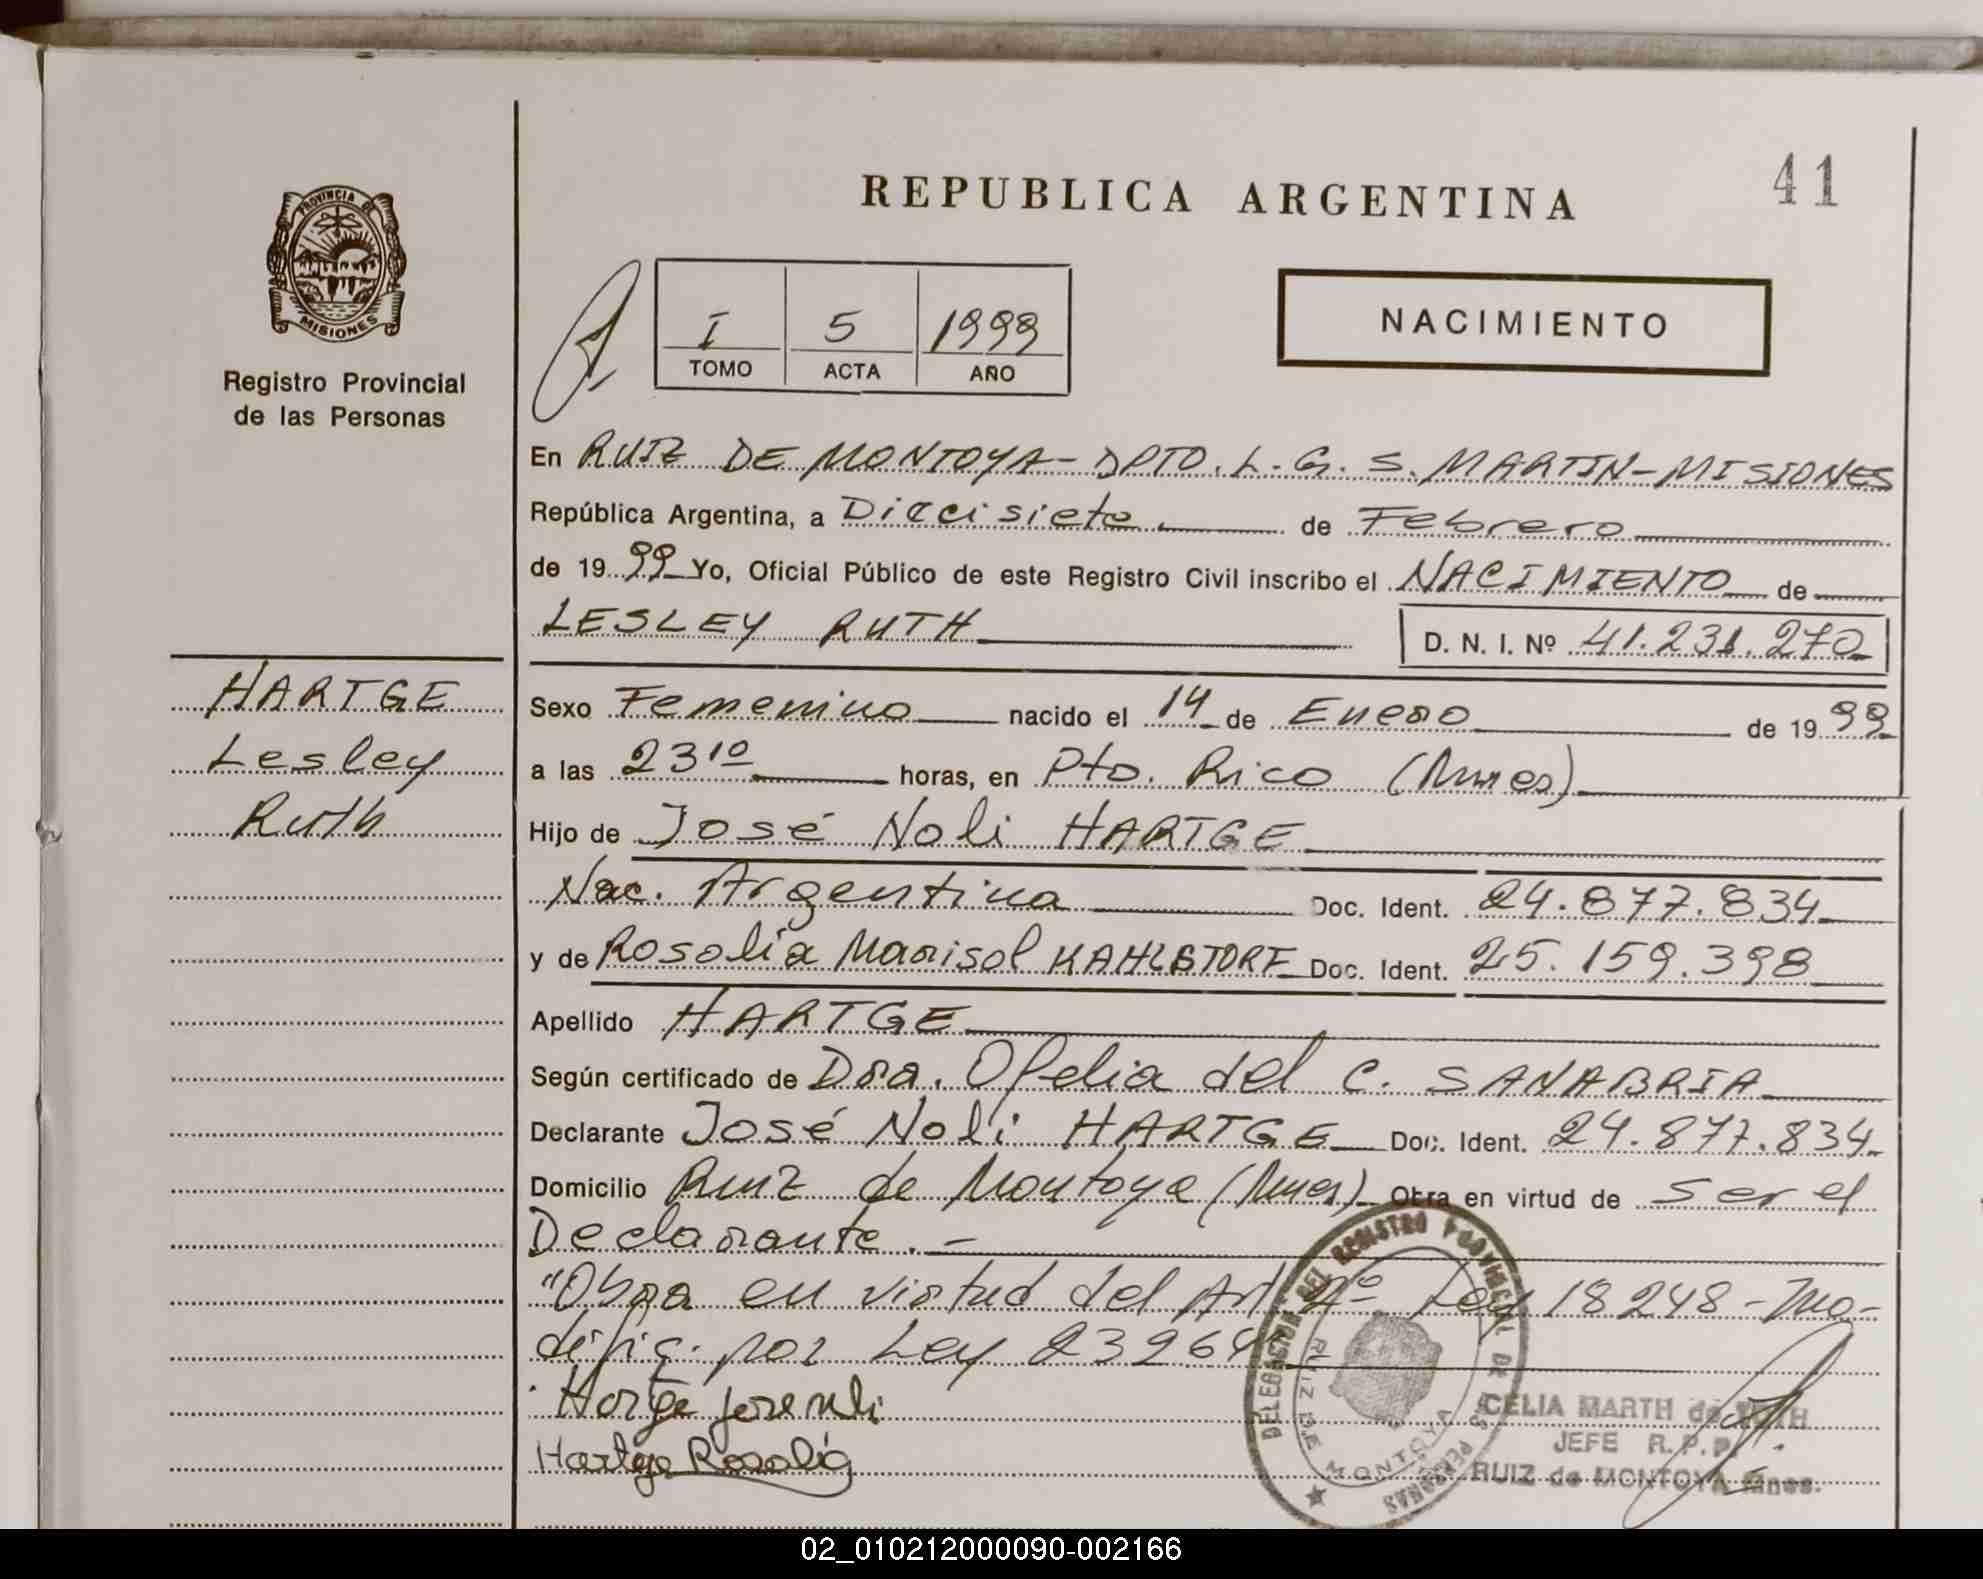 REPUBLICA ARGENTINA
41
PROVINCIA DE
MISIONES
Registro Provincial
de las Personas
I 5 1999
TOMO ACTA AÑO
NACIMIENTO
En RUIZ DE MONTOYA - DPTO. L. G. S. MARTIN - MISIONES
República Argentina, a Diecisiete de Febrero
de 1999 Yo, Oficial Público de este Registro Civil inscribo el NACIMIENTO de
LESLEY RUTH D. N. I. Nº 41.231.270
HARTGE
Lesley
Ruth
Sexo Femenino nacido el 14 de Enero de 1999
a las 23 10 horas, en Pto. Rico (Mnes)
Hijo de José Noli HARTGE
Nac. Argentina Doc. Ident. 24.877.834
y de Rosalia Marisol KAHLSTORF Doc. Ident. 25.159.398
Apellido HARTGE
Según certificado de Dra. Ofelia del C. SANABRIA
Declarante José Noli HARTGE Doc. Ident. 24.877.834
Domicilio Ruiz de Montoya (Mnes) Obra en virtud de ser el
Declarante. -
"Obra en virtud del Art. 2º Ley 18248 - mo-
dific. por Ley 23264
Hartge José Noli
Hartge Rosalia
DELEGACION DEL REGISTRO PROVINCIAL DE LAS PERSONAS
RUIZ DE MONTOYA
CELIA MARTH de
JEFE R.P.P.
RUIZ de MONTOYA Mnes.
02_010212000090-002166